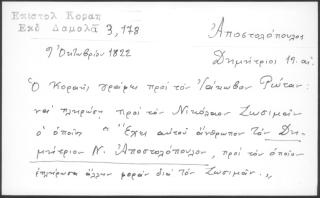 Επιστολ Κοραη
Εκδ Δαμαλᾶ 3, 178
Ἀποστολόπουλος
Δημήτριος 19. αἰ.
9 Ὀκτωβρίου 1822
Ὁ Κοραῆς γράφει πρὸς τὸν Ἰάκωβον Ρώταν:
νὰ πληρώση πρὸς τὸν Νικόλαον Ζωσιμᾶν
ὁ ὁποῖος "Ἔχει αὐτοῦ ἄνθρωπον τὸν Δη-
μήτριον Ν. Ἀποστολόπουλον, πρὸς τὸν ὁποῖον
ἐπλήρωσα ἄλλην φορὰν διὰ τὸν Ζωσιμᾶν.„